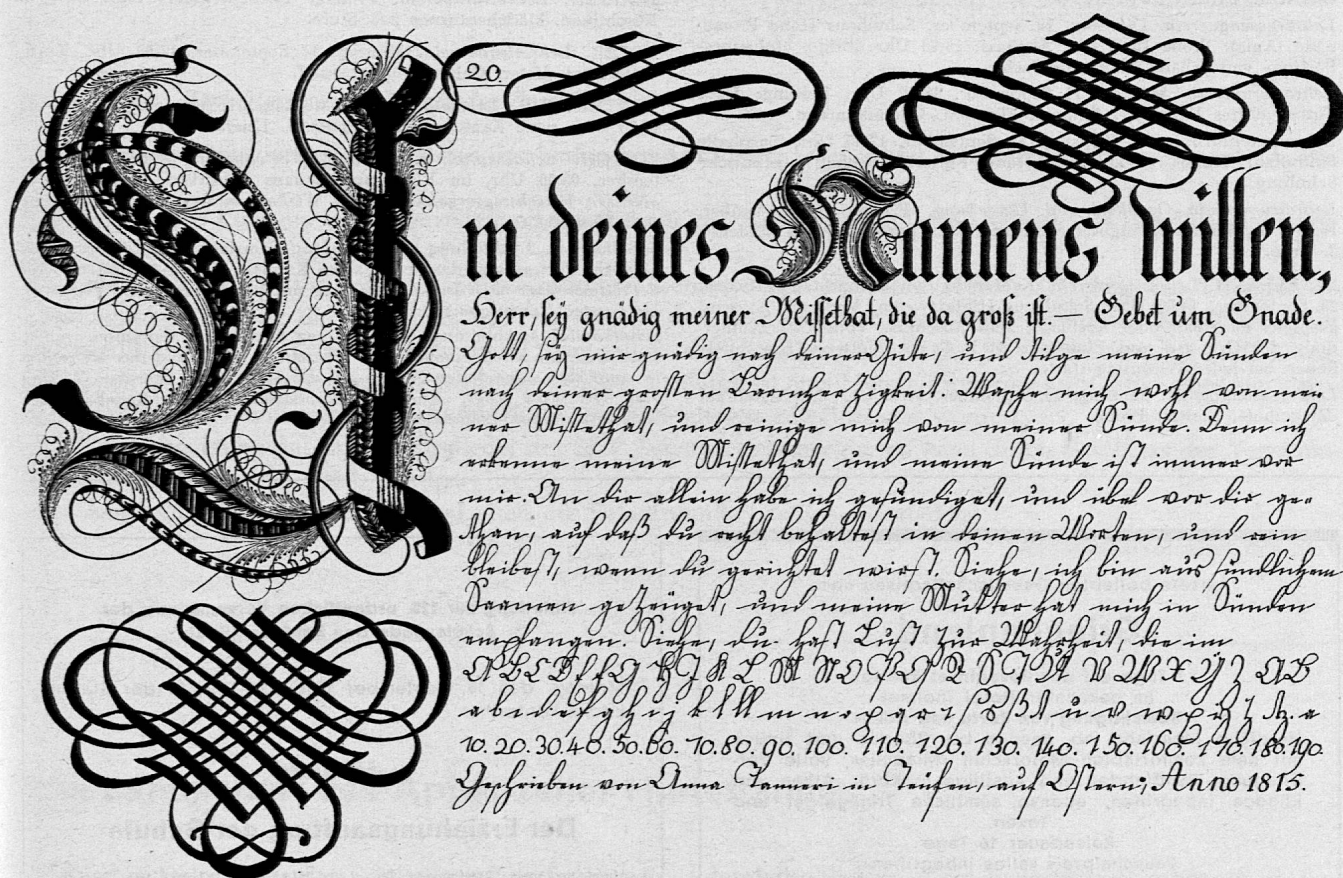 20.
Um deines Namens willen,
Herr, seÿ gnädig meiner Missethat, die da groß ist. — Gebet um Gnade.
Gott, seÿ mir gnädig nach deiner Güte, und tilge meine Sünden
nach deiner grossten Barmcherzigkeit. Wasche mich wohl von mei-
ner Missethat, und reinige mich von meiner Sünde. Denn ich
erkenne meine Missethat, und meine Sünde ist immer vor
mir. An dir allein habe ich gesündiget, und übel vor dir ge-
than, auf daß du recht behaltest in deinen Worten, und rein
bleibest, wenn du gerichtet wirst. Siehe, ich bin aus sündlichem
Saamen gezeüget, und meine Mutter hat mich in Sünden
empfangen. Siehe, du hast Lust zur Wahrheit, die im
A B C D E F G H J K L M N O P Q R S T U V W X Y Z A B
a b c d e f g h i j k l ll m n o p q r s ß t u v w x ÿ z tz. a
10. 20. 30. 40. 50. 60. 70. 80. 90. 100. 110. 120. 130. 140. 150. 160. 170. 180. 190.
Geschrieben von Anna Tanneri in Teüfen, auf Ostern; Anno 1815.